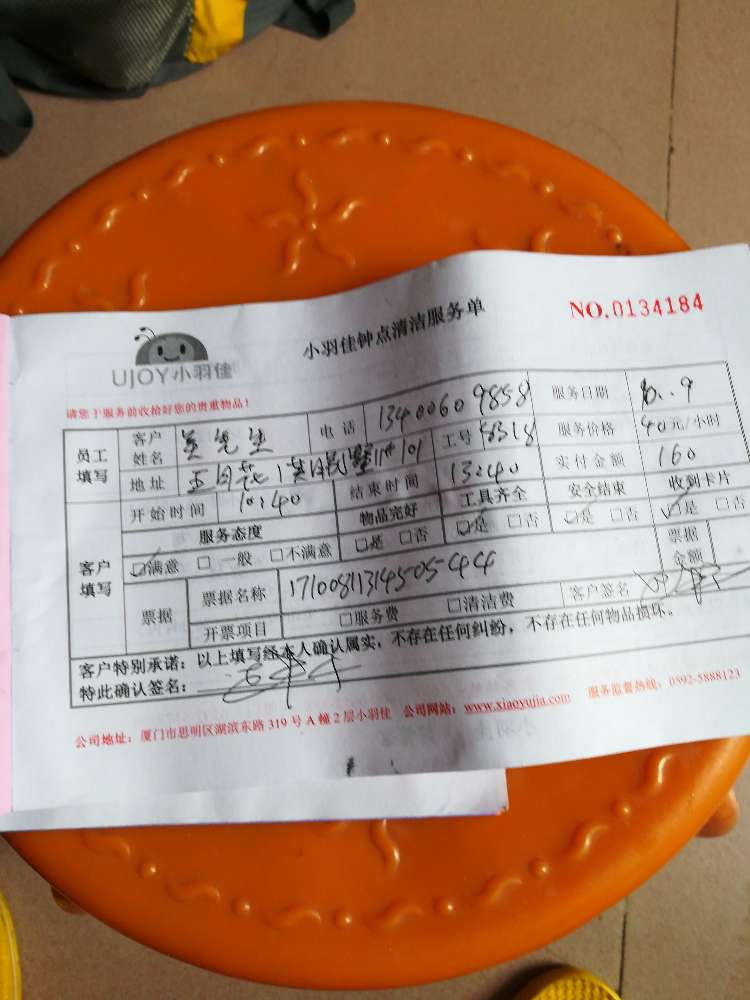 NO.0134184
小羽佳钟点清洁服务单
UJOY小羽佳
请您于服务前收拾好您的贵重物品!
员工填写 客户姓名 吴先生 电话 13400609858 服务日期 10..9
地址 工号 58318 服务价格 40元/小时
开始时间 10:40 结束时间 13:40 实付金额 160
客户填写 服务态度 物品完好 工具齐全 安全结束 收到卡片
满意 一般 不满意 是 否 是 否 是 否 是 否
票据 票据名称 17100811314505-44 票据金额
开票项目 服务费 清洁费 客户签名
客户特别承诺:以上填写经本人确认属实,不存在任何纠纷,不存在任何物品损坏。
特此确认签名:
公司地址:厦门市思明区湖滨东路319号A幢2层小羽佳 公司网站:www.xiaoyujia.com 服务监督热线:0592-5888123